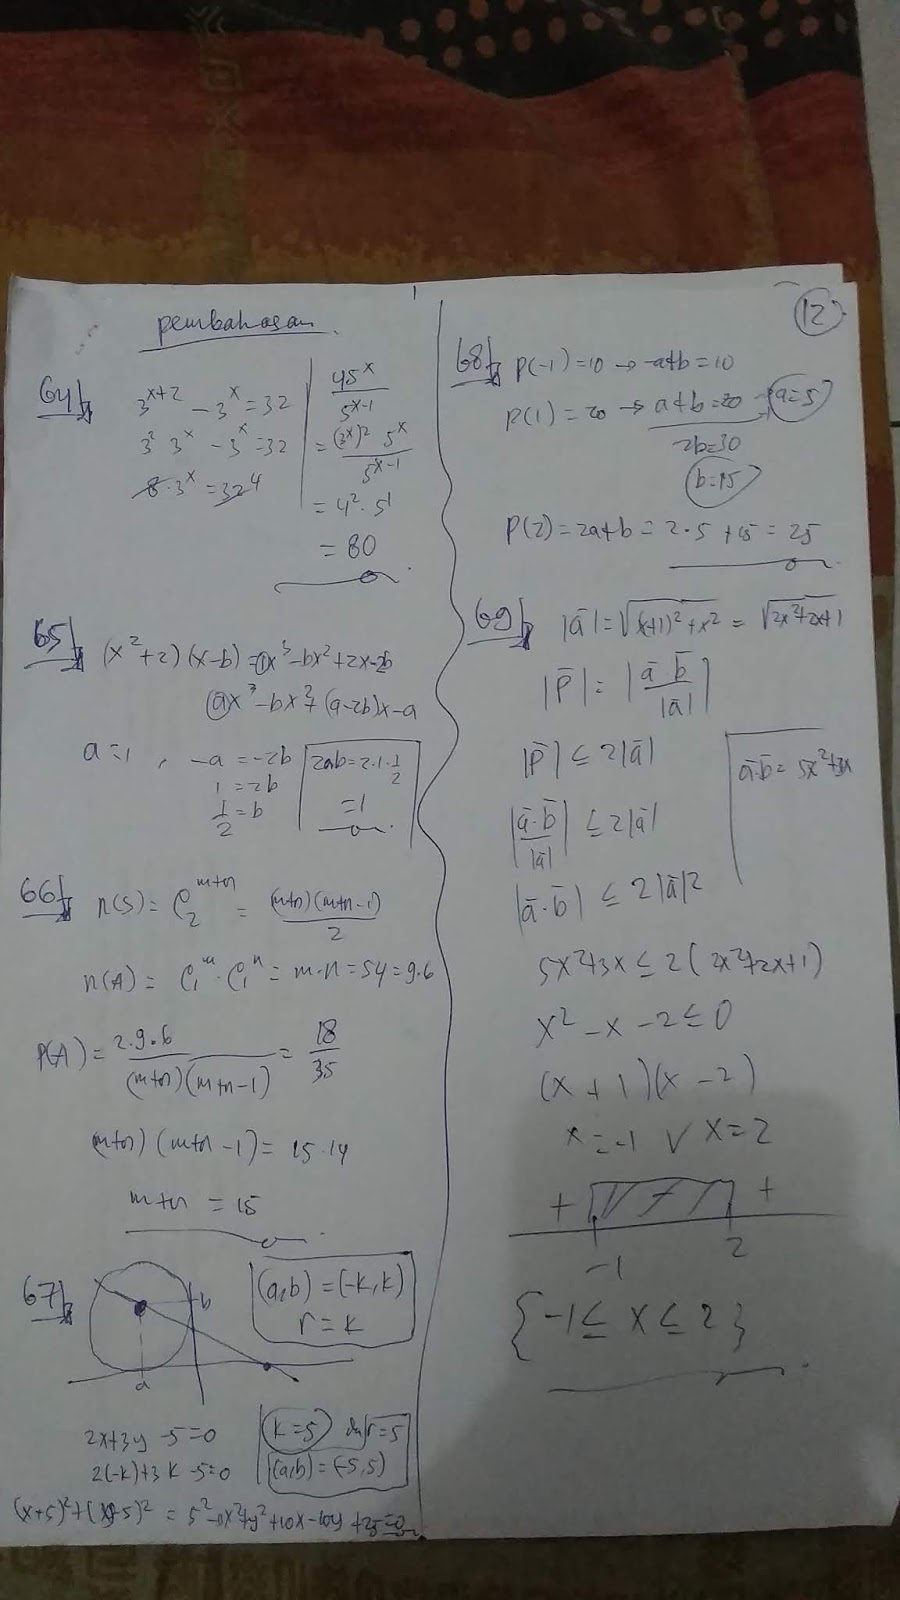 12
pembahasan
64
3^{x+2} - 3^x = 32
3^2 3^x - 3^x = 32
8·3^x = 32 4
45^x / 5^{x-1}
= (3^x)^2 5^x / 5^{x-1}
= 4^2 · 5^1
= 80
65
(x^2+2)(x-b) = 1x^3 - bx^2 + 2x - 2b
ax^3 - bx^2 + (a-2b)x - a
a = 1 , -a = -2b
1 = 2b
1/2 = b
2ab = 2·1·1/2
= 1
66
n(S) = C_2^{m+n} = (m+n)(m+n-1) / 2
n(A) = C_1^m · C_1^n = m·n = 54 = 9.6
P(A) = 2.9.6 / (m+n)(m+n-1) = 18/35
(m+n)(m+n-1) = 15.14
m+n = 15
67
b
a
(a,b) = (-k,k)
r = k
2x+3y -5=0
2(-k)+3k -5=0
k=5 r=5
(a,b) = (-5,5)
(x+5)^2+(y-5)^2 = 5^2 x^2+y^2+10x-10y+25=0
68
P(-1)=10 → -a+b=10
P(1)=20 → a+b=20 a=5
2b=30
b=15
P(2)=2a+b = 2·5 +15 = 25
69
|a̅| = √(x+1)^2+x^2 = √2x^2+2x+1
|P̅| = |a̅·b̅ / |a̅||
|P̅| ≤ 2|a̅|
a̅·b̅ = 5x^2+3x
|a̅·b̅ / |a̅|| ≤ 2|a̅|
|a̅·b̅| ≤ 2|a̅|2
5x^2+3x ≤ 2(2x^2+2x+1)
x^2 - x - 2 ≤ 0
(x + 1)(x - 2)
x = -1 V x = 2
+ - +
-1 2
{-1 ≤ x ≤ 2}